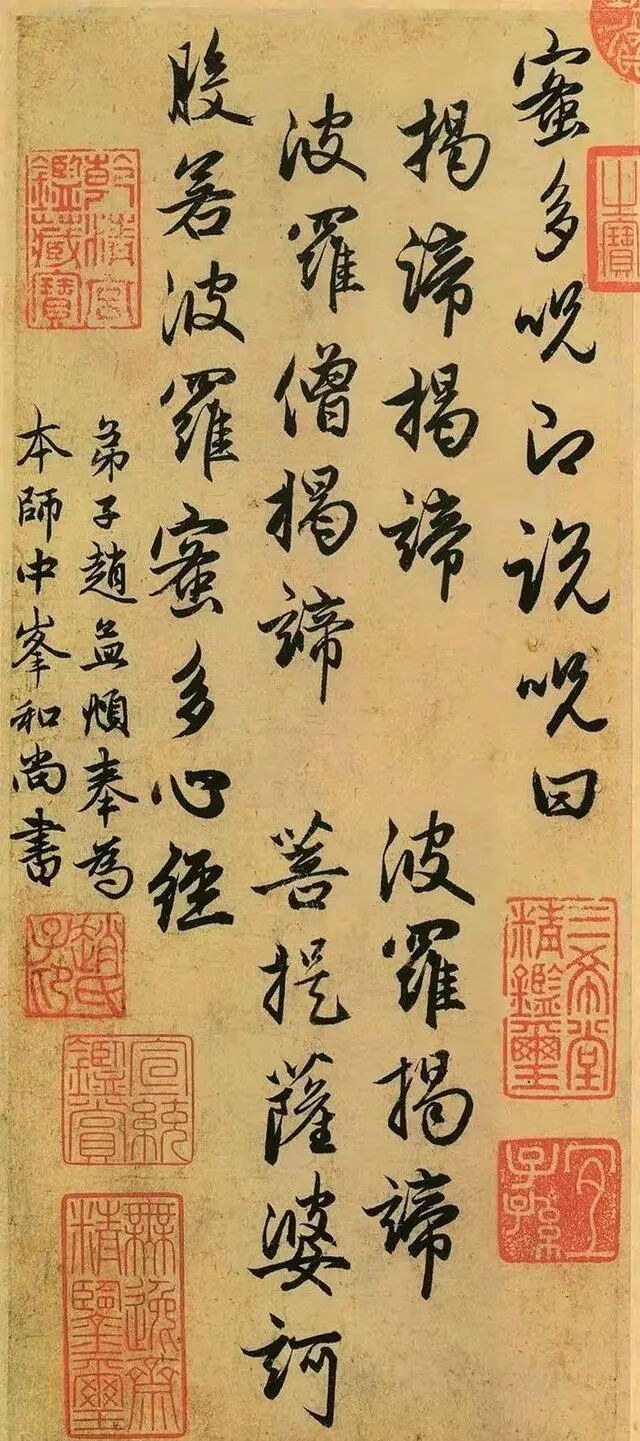 蜜多呪即說呪曰
揭諦揭諦　波羅揭諦
波羅僧揭諦　菩提薩婆訶
般若波羅蜜多心經
弟子趙孟頫奉為
本師中峯和尚書
之寶
三希堂精鑑璽
宜子孫
乾清宮鑑藏寶
趙氏子昂
宣統鑑賞
無逸齋精鑑璽